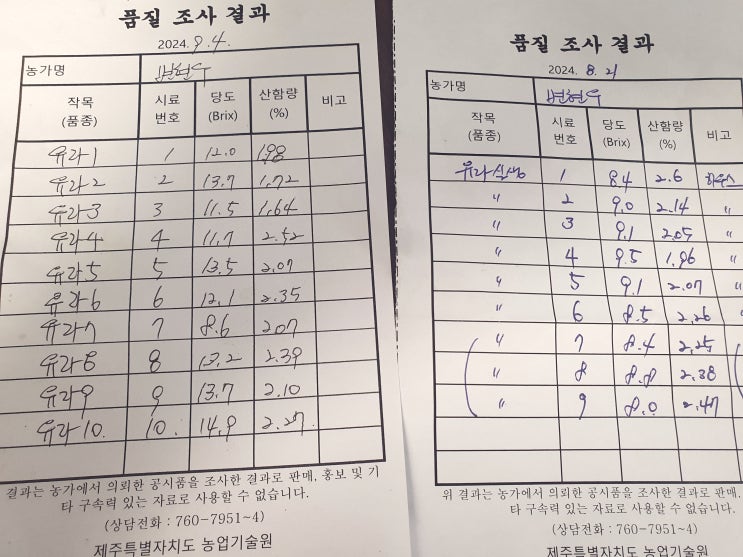 품질 조사 결과
2024. 9. 4.
농가명 변현우
작목 (품종) 시료 번호 당도 (Brix) 산함량 (%) 비고
유라1 1 12.0 1.98
유라2 2 13.7 1.72
유라3 3 11.5 1.64
유라4 4 11.7 2.52
유라5 5 13.5 2.07
유라6 6 12.1 2.35
유라7 7 8.6 2.07
유라8 8 13.2 2.39
유라9 9 13.7 2.10
유라10. 10. 14.9 2.27
결과는 농가에서 의뢰한 공시품을 조사한 결과로 판매, 홍보 및 기
타 구속력 있는 자료로 사용할 수 없습니다.
(상담전화 : 760-7951~4)
제주특별자치도 농업기술원
품질 조사 결과
2024. 8. 21
농가명 변현우
작목 (품종) 시료 번호 당도 (Brix) 산함량 (%) 비고
유라실생 1 8.4 2.6 하우스
〃 2 9.0 2.14 〃
〃 3 9.1 2.05 〃
〃 4 9.5 1.96 〃
〃 5 9.1 2.07 〃
〃 6 8.5 2.26 〃
〃 7 8.4 2.25
〃 8 8.8 2.38
〃 9 8.0 2.47
위 결과는 농가에서 의뢰한 공시품을 조사한 결과로 판매,
타 구속력 있는 자료로 사용할 수 없습니다.
(상담전화 : 760-7951~4)
제주특별자치도 농업기술원